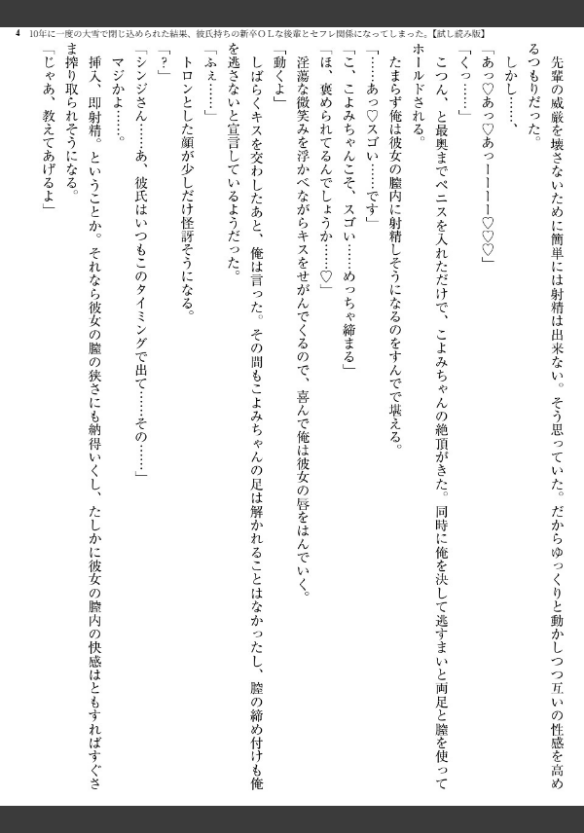 4 10年に一度の大雪で閉じ込められた結果、彼氏持ちの新卒OLな後輩とセフレ関係になってしまった。【試し読み版】
先輩の威厳を壊さないために簡単には射精は出来ない。そう思っていた。だからゆっくりと動かしつつ互いの性感を高め
るつもりだった。
しかし……、
「あっ♡あっ♡あっーーーー♡♡♡」
「くっ……」
こつん、と最奥までペニスを入れただけで、こよみちゃんの絶頂がきた。同時に俺を決して逃すまいと両足と膣を使って
ホールドされる。
たまらず俺は彼女の膣内に射精しそうになるのをすんでで堪える。
「……あっ♡スゴい……です」
「こ、こよみちゃんこそ、スゴい……めっちゃ締まる」
「ほ、褒められてるんでしょうか……♡」
淫蕩な微笑みを浮かべながらキスをせがんでくるので、喜んで俺は彼女の唇をはんでいく。
「動くよ」
しばらくキスを交わしたあと、俺は言った。その間もこよみちゃんの足は解かれることはなかったし、膣の締め付けも俺
を逃さないと宣言しているようだった。
「ふぇ……」
トロンとした顔が少しだけ怪訝そうになる。
「?」
「シンジさん……あ、彼氏はいつもこのタイミングで出て……その……」
マジかよ……。
挿入、即射精。ということか。それなら彼女の膣の狭さにも納得いくし、たしかに彼女の膣内の快感はともすればすぐさ
ま搾り取られそうになる。
「じゃあ、教えてあげるよ」